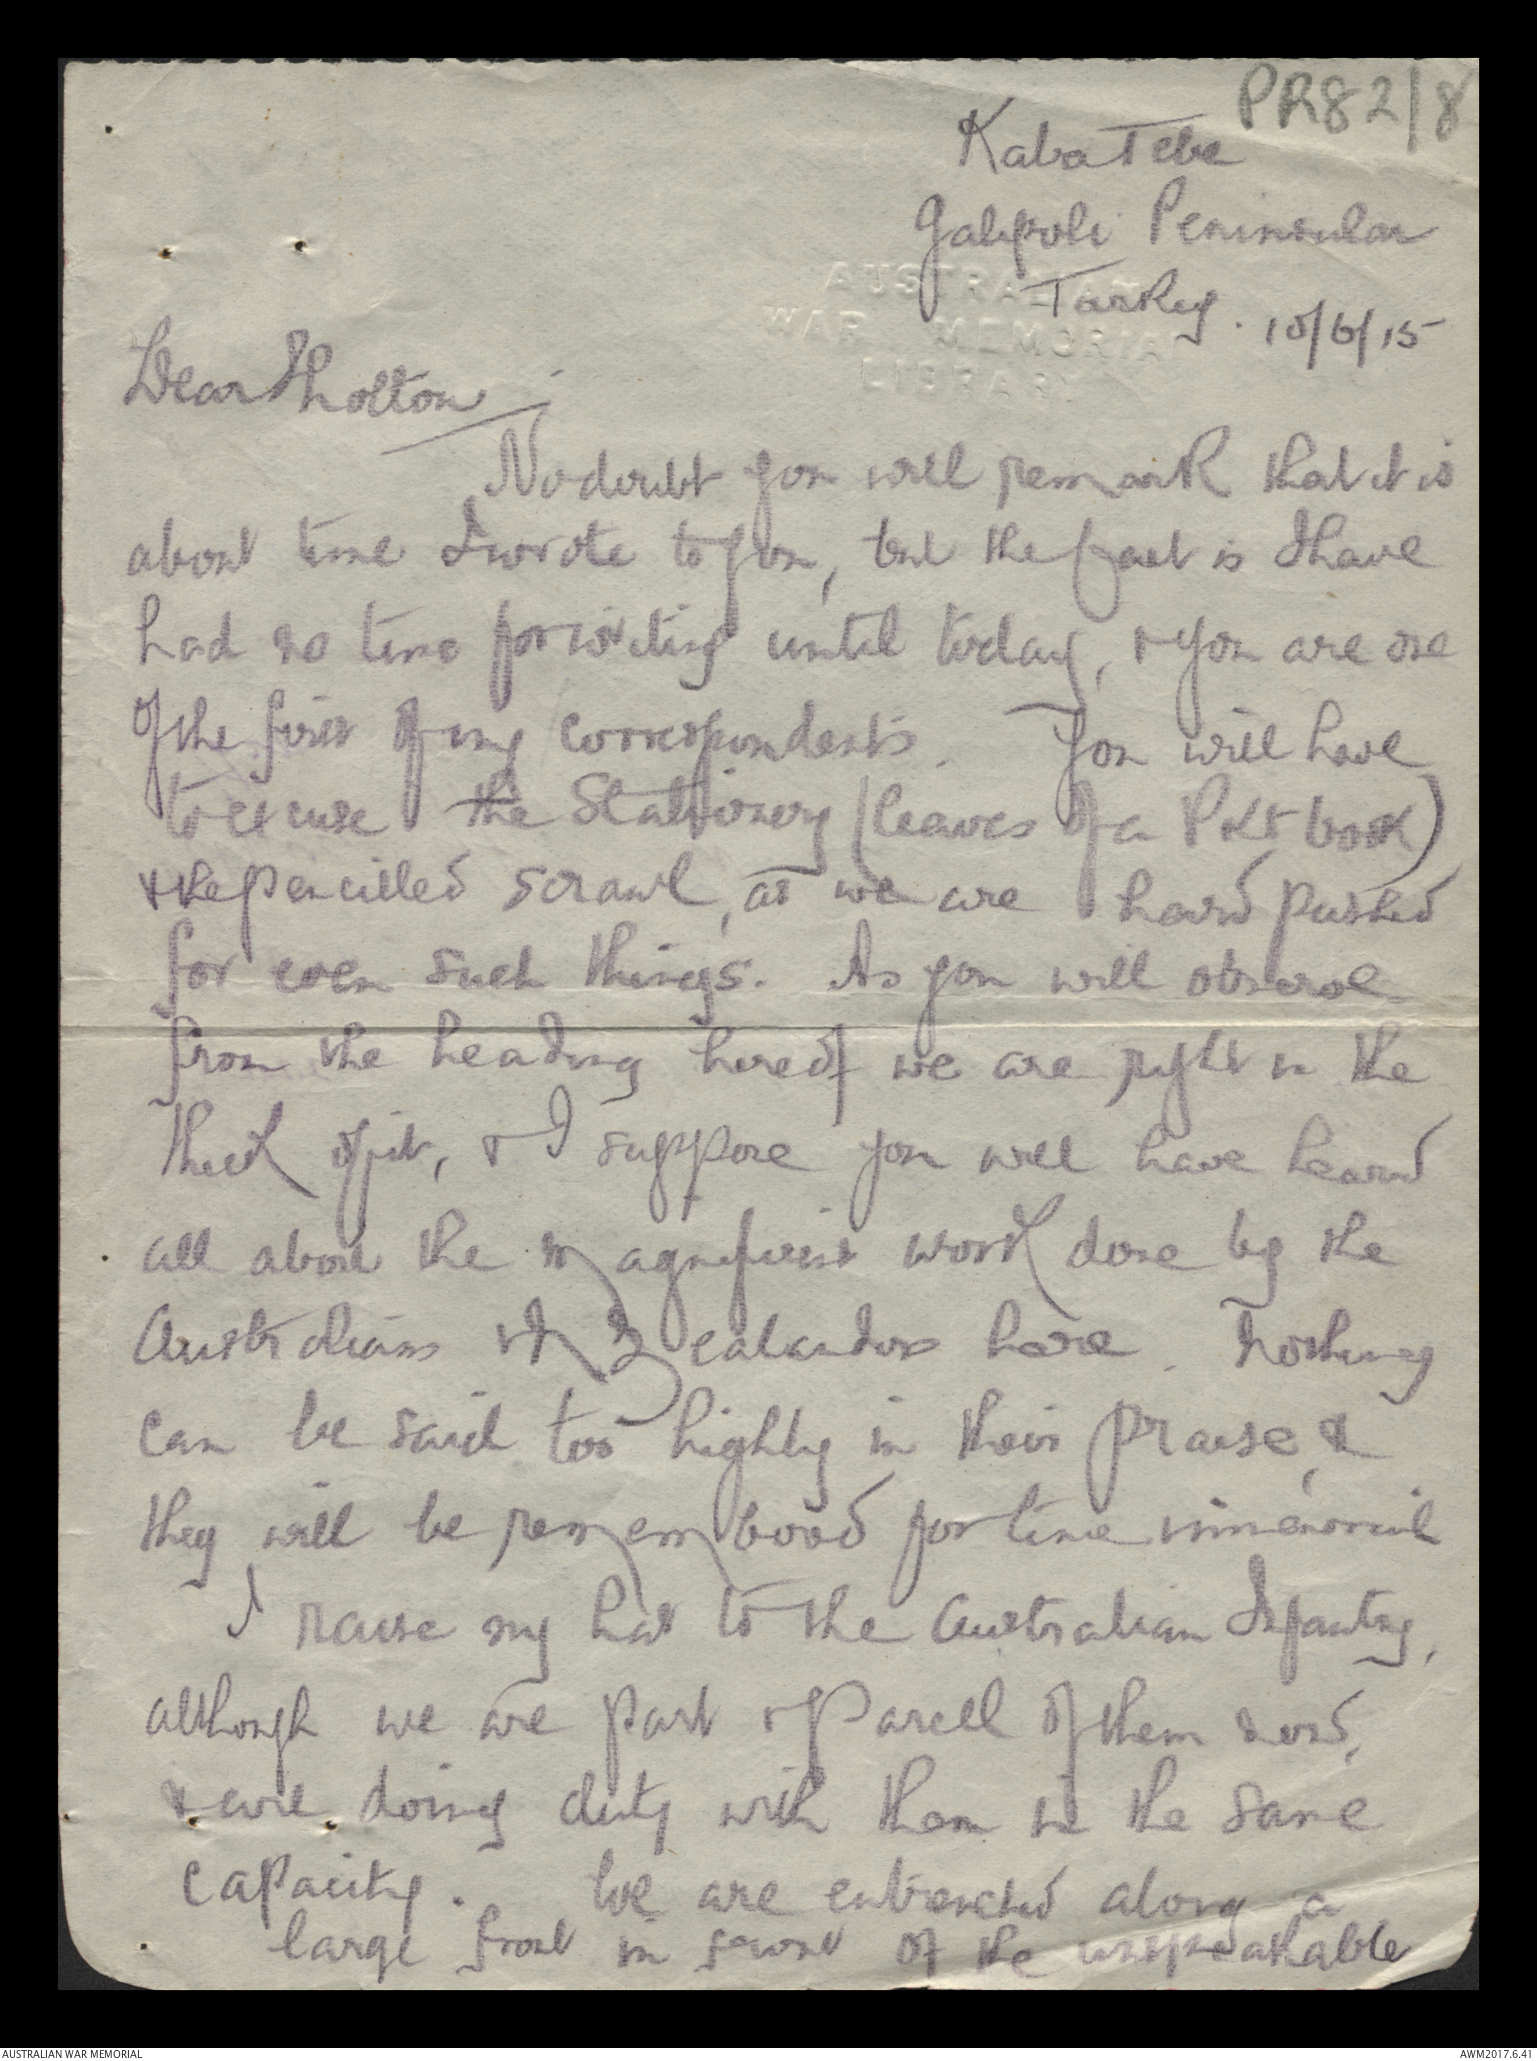 PR82/8
Kaba Tebe
Galipoli Peninsular
Turkey. 10/6/15
AUSTRALIAN
WAR MEMORIAL
LIBRARY
Dear Sholton,
No doubt you will remark that it is
about time I wrote to you, but the fact is I have
had no time for writing until today, & you are one
of the first of my correspondents. You will have
to excuse the Stationery (leaves of a Pkt book)
& the pencilled scrawl, as we are hard pushed
for even such things. As you will observe
from the heading hereof we are right in the
thick of it, & I suppose you will have heard
all about the magnificent work done by the
Australians & N Zealanders here. Nothing
can be said too highly in their praise, &
they will be remembered for time immemorial
I raise my hat to the Australian Infantry,
although we are part & parcell of them now,
& are doing duty with them in the same
capacity. We are entrenched along a
large front in front of the unspeakable
AUSTRALIAN WAR MEMORIAL
AWM2017.6.41